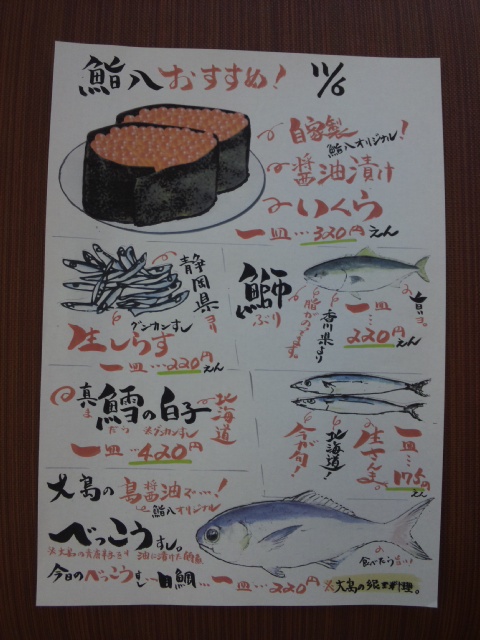 鮨八おすすめ! 11/6
自家製
鮨八オリジナル!
醤油漬け
いくら
一皿…320円
えん
静岡県より
グンカンすし
生しらす
一皿…220円
えん
鰤
ぶり
香川県より
脂がのってます
旨いヨ。
一皿…220円
えん
真鱈の白子
まだら グンカンすし
北海道
一皿…420円
生さんま。
北海道!
今が旬!
一皿…175円
えん
大島の島醤油で…!
鮨八オリジナル
べっこうすし。
今日のべっこうすし…目鯛…一皿…220円
食べたら旨い!
※大島の郷土料理。